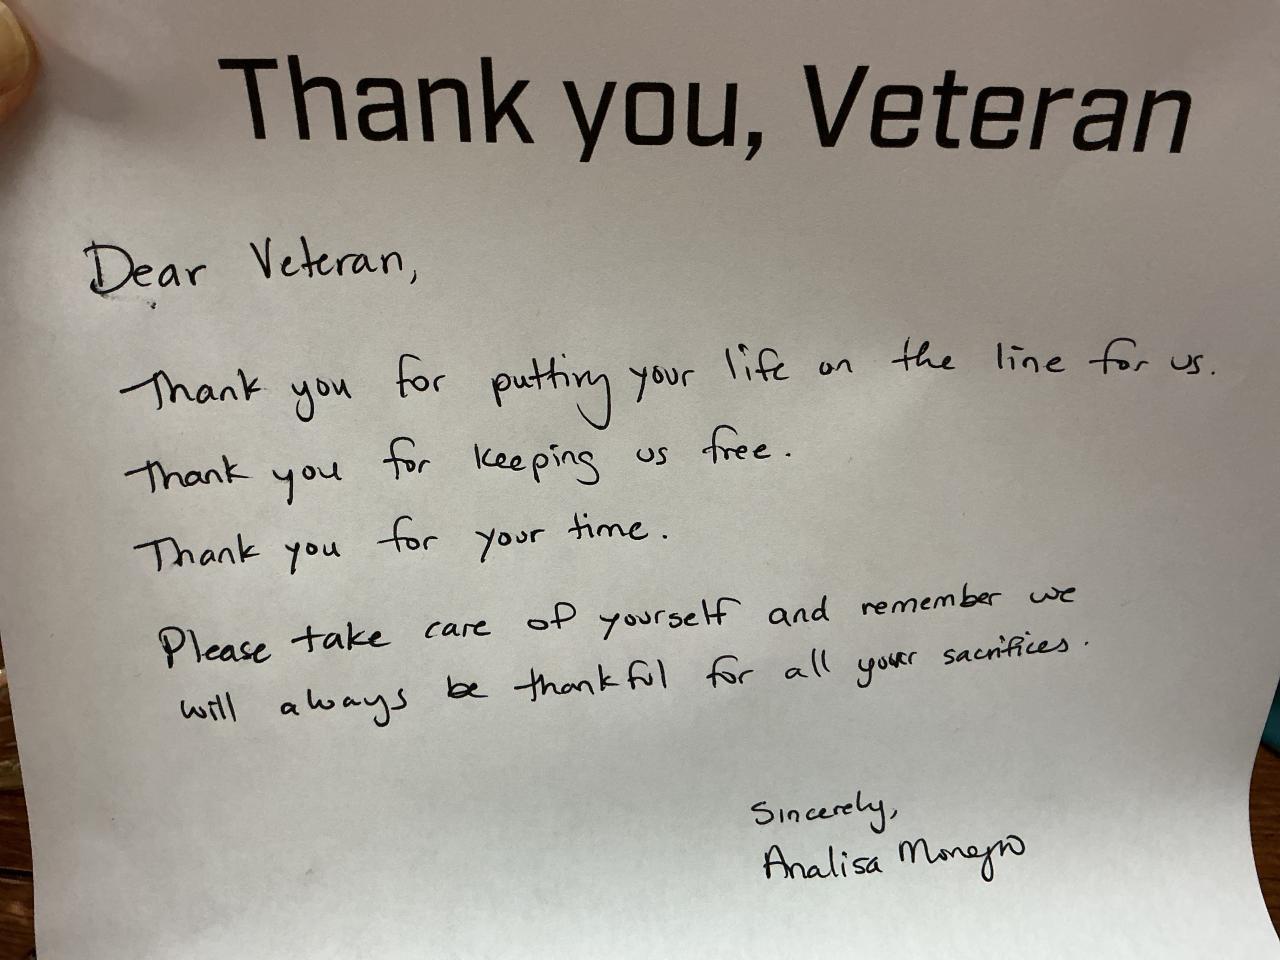 Thank you, Veteran
Dear Veteran,
Thank you for putting your life on the line for us.
Thank you for keeping us free.
Thank you for your time.
Please take care of yourself and remember we
will always be thankful for all your sacrifices.
Sincerely,
Analisa Monegro